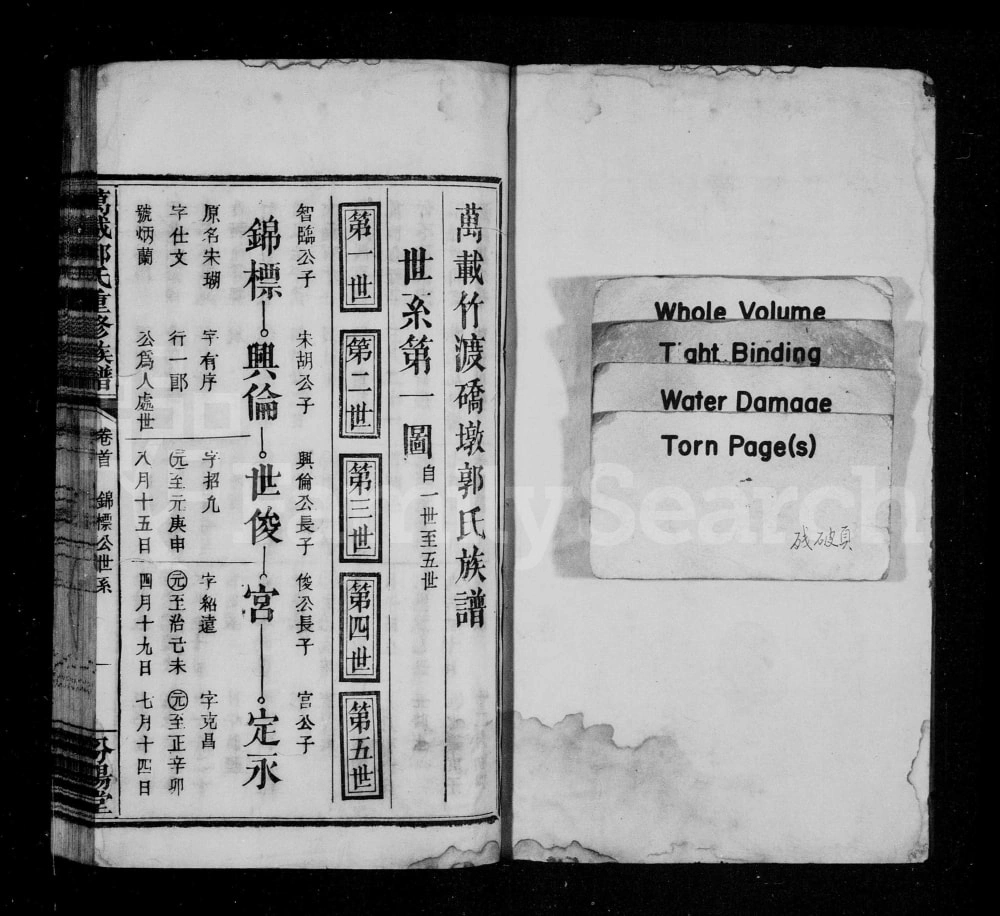 Whole Volume
Tight Binding
Water Damage
Torn Page(s)
残破頁
萬載竹渡礄墩郭氏族譜
世系第一圖 自一世至五世
第一世
第二世
第三世
第四世
第五世
智臨公子
朱胡公子
興倫公長子
俊公長子
宮公子
錦標 興倫 世俊 宮 定永
原名朱瑚
字有序
字招九
字紹遠
字克昌
字仕文
行一郎
元至元庚申
元至治己未
元至正辛卯
號炳蘭
公爲人處世
八月十五日
四月十九日
七月十四日
萬載郭氏重修族譜
卷首
錦標公世系
一
汾陽堂
FamilySearch